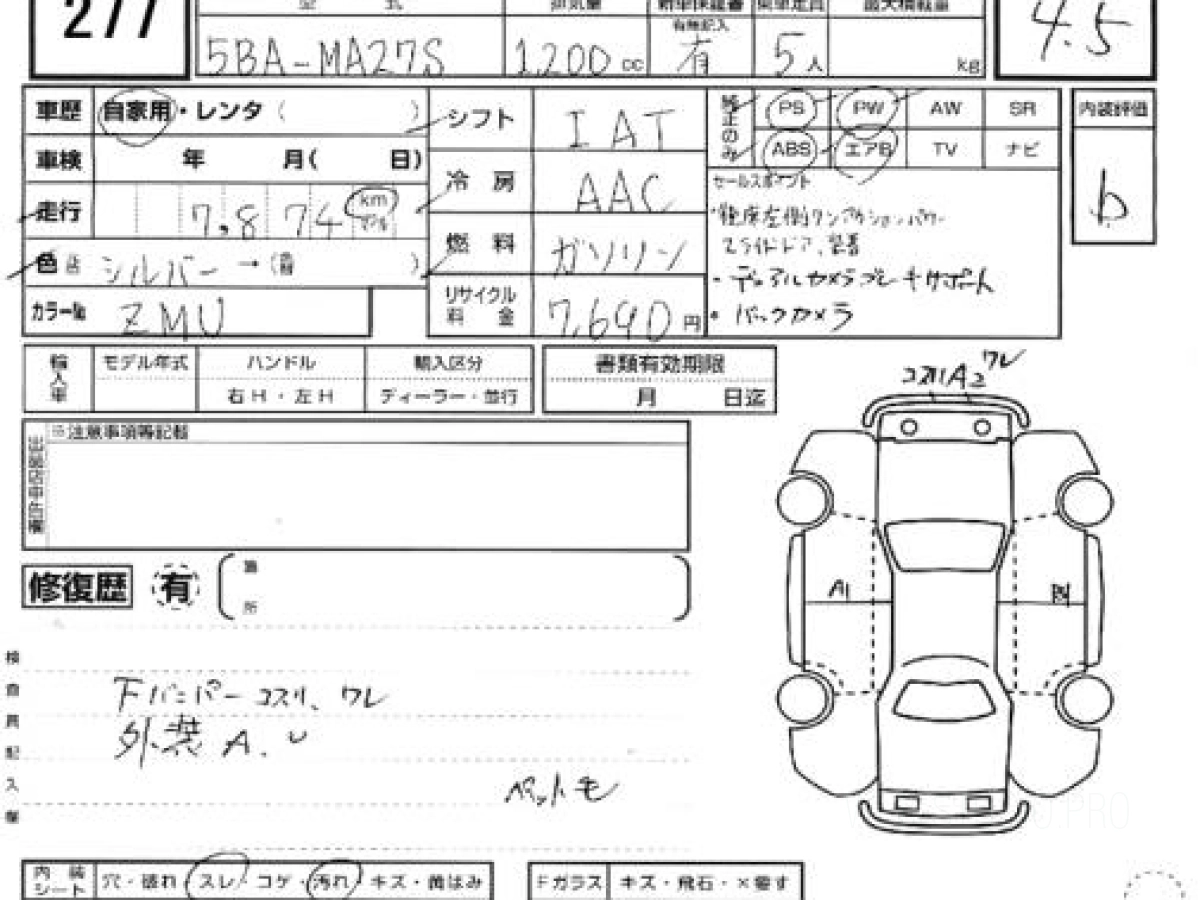 277
型 式 排気量 新車保証書 乗車定員 最大積載量
有無記入
5BA-MA27S 1,200 cc 有 5 人 kg
4.5
車歴 自家用・レンタ( ) シフト IAT
純正のみ PS PW AW SR
ABS エアB TV ナビ
内装評価
b
車検 年 月( 日)
冷房 AAC
走行 7,874 km マイル
セールスポイント
・後席左側ワンアクションパワー
スライドドア、装着
・デュアルカメラブレーキサポート
・バックカメラ
燃料 ガソリン
色 シルバー →( )
カラーNo ZMU
リサイクル料金 7,690 円
輸入車 モデル年式 ハンドル 輸入区分
右H・左H ディーラー・並行
書類有効期限
月 日迄
コスリA2 ワレ
出品店申告欄
※注意事項等記載
修復歴 有
箇所
A1
検査員記入欄
下バンパーコスリ、ワレ
外装A、U
ペット毛
内装シート 穴・破れ・スレ・コゲ・汚れ・キズ・黄ばみ
Fガラス キズ・飛石・×要す